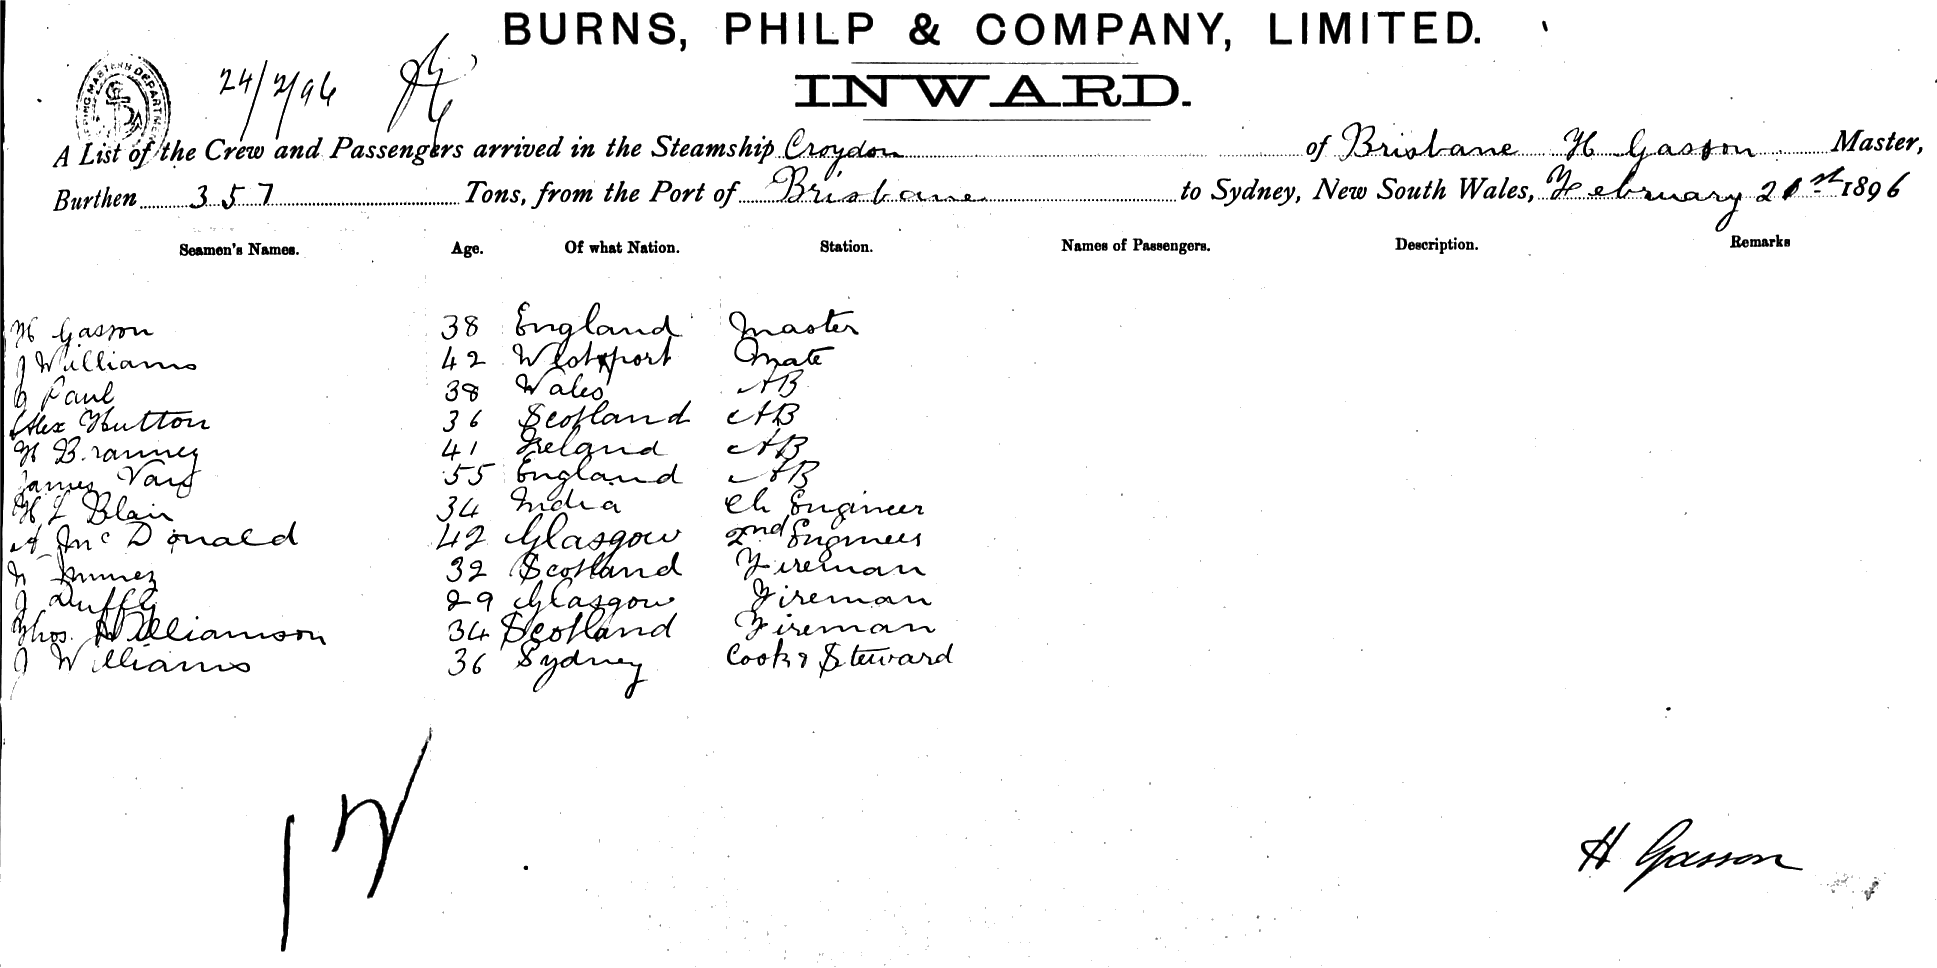 BURNS, PHILP & COMPANY, LIMITED.
INWARD.
24/2/96
A List of the Crew and Passengers arrived in the Steamship Croydon of Brisbane H Gasson Master,
Burthen 357 Tons, from the Port of Brisbane to Sydney, New South Wales, February 21st 1896
Seamen's Names. Age. Of what Nation. Station. Names of Passengers. Description. Remarks
H Gasson 38 England Master
J Williams 42 Westport Mate
Paul 38 Wales AB
Alex Hutton 36 Scotland AB
H Branney 41 Ireland AB
James 55 England AB
H L Blair 34 India Ch Engineer
A McDonald 42 Glasgow 2nd Engineer
32 Scotland Fireman
J Duffy 29 Glasgow Fireman
Thos. Williamson 34 Scotland Fireman
J Williams 36 Sydney Cook & Steward
H Gasson